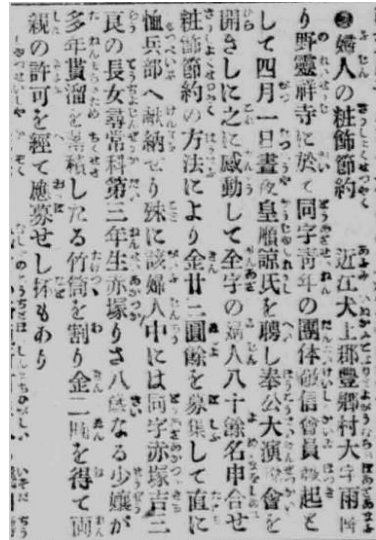 婦人の粧飾節約　近江犬上郡豐鄕村大字雨降
り野靈祥寺に於て同字靑年の團体信會員發起と
して四月一日晝夜皇順諒氏を聘し奉公大演會を
開きしに之に感動して全字の婦人八十餘名申合せ
粧飾節約の方法により金廿二圓餘を募集して直に
恤兵部へ献納せり殊に該婦人中には同字赤塚吉三
良の長女尋常科第三年生赤塚りさ八歲なる少孃が
多年貰溜を積したる竹筒を割り金二圓を得て両
親の許可を經て應募せし抔もあり